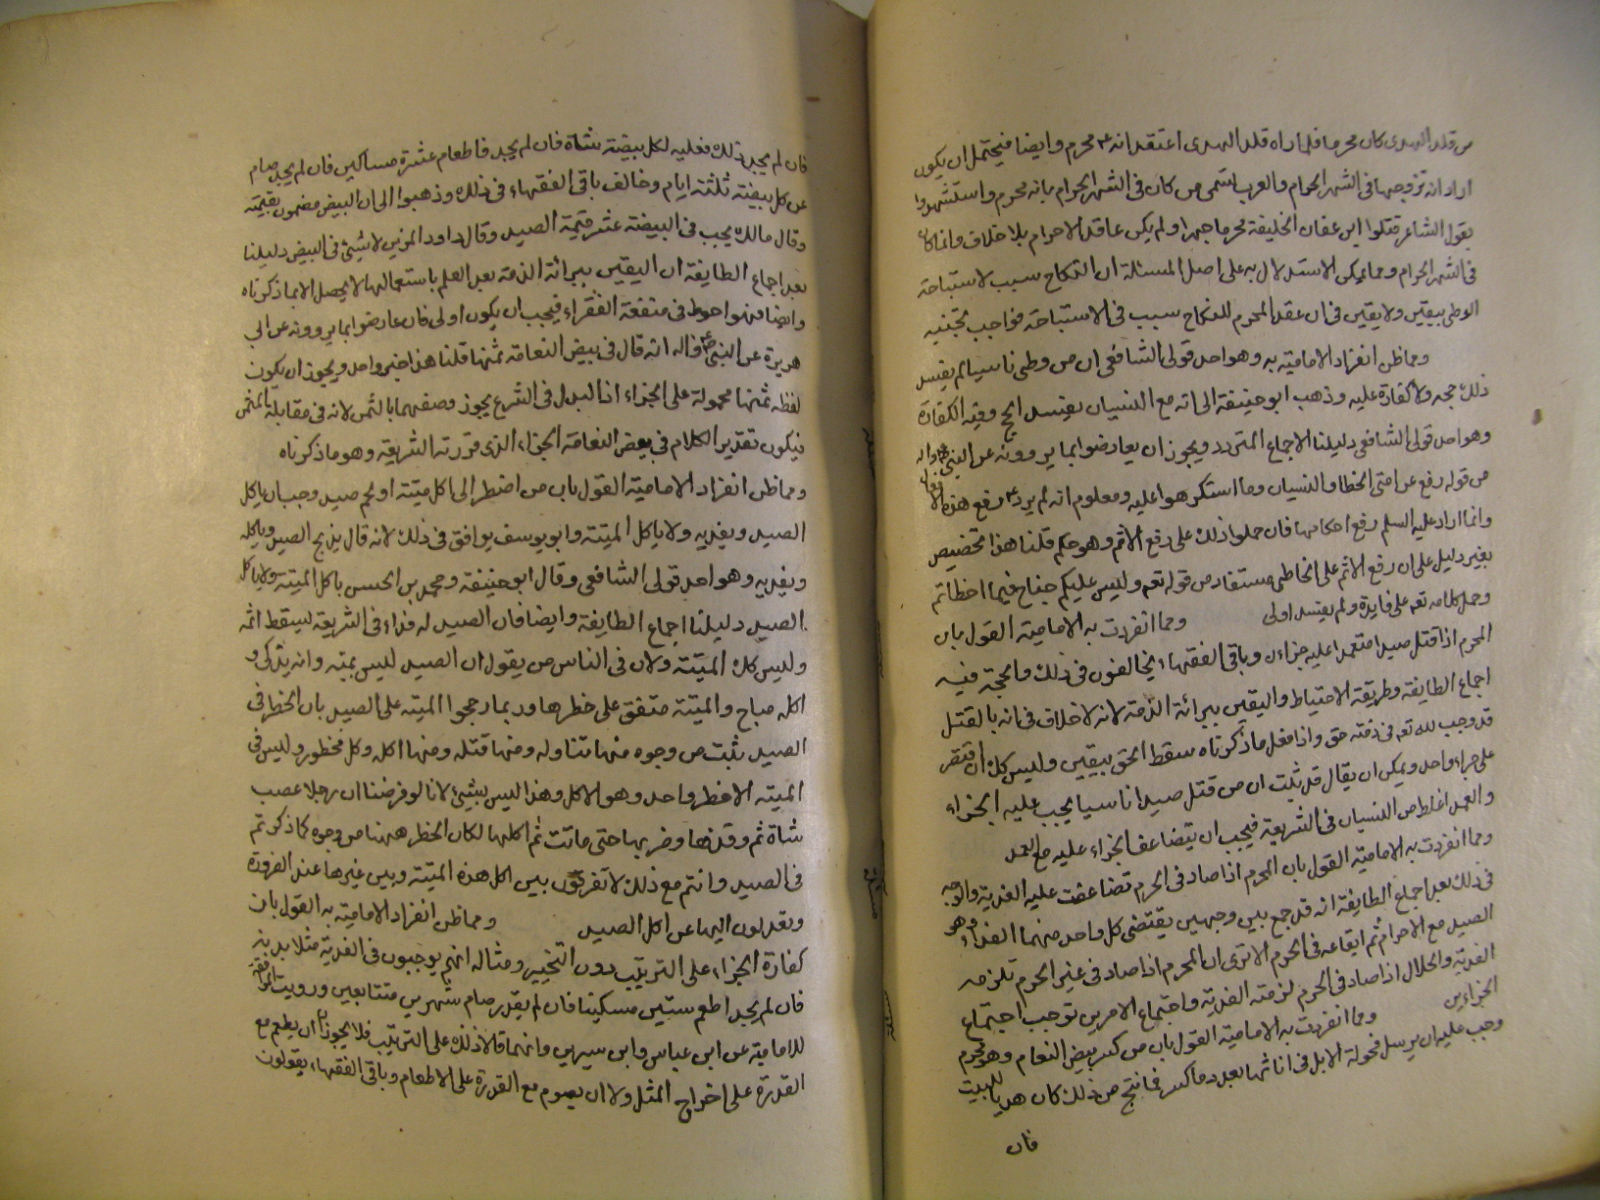 من قلد الهدى كان محرما فلما راه قلد الهدى اعتقد انه محرم وايضا فيحتمل ان يكون
اراد انه تزوجها فى الشهر الحرام والعرب تسمى من كان فى الشهر الحرام بانه محرم واستشهدوا
بقول الشاعر قتلوا ابن عفان الخليفة محرما جهرا ولم يكن عاقد الاحرام بلا خلاف وانما كان
فى الشهر الحرام ومما يمكن الاستدلال به على اصل المسئلة ان النكاح سبب لاستباحة
الوطى بيقين ولا يقين فى ان عقد المحرم للنكاح سبب فى الاستباحة فواجب تجنبه
ومما ظن انفراد الامامية به وهو احد قولى الشافعى ان من وطى ناسيا لم يفسد
ذلك حجه ولا كفارة عليه وذهب ابو حنيفة الى انه مع النسيان يفسد الحج وفيه الكفارة
وهو احد قولى الشافعى دليلنا الاجماع المتردد ويجوز ان يعارضوا بما يروونه عن النبى ص واله
من قوله رفع عن امتى الخطا والنسيان وما استكرهوا عليه ومعلوم انه لم يرد رفع هذه الافعال
وانما اراد عليه السلم رفع احكامها فان حملوا ذلك على رفع الاثم وهو حكم قلنا هذا تخصيص
بغير دليل على ان رفع الاثم على الخاطى مستفاد من قوله تعه وليس عليكم جناح فيما اخطاتم
وحمل كلامه تعه على فايدة ولم يفسد اولى ومما انفردت به الامامية القول بان
المحرم اذا قتل صيدا متعمدا عليه جزاءان وباقى الفقهاء يخالفون فى ذلك والحجة فيه
اجماع الطايفة وطريقة الاحتياط واليقين ببرائة الذمة لانه لا خلاف فى انه بالقتل
قد وجب لله تعه فى ذمته حق واذا فعل ما ذكرناه سقط الحق بيقين وليس كك ان اقتصر
على جزاء واحد ويمكن ان يقال قد ثبت ان من قتل صيدا ناسيا يجب عليه الجزاء
والعمد اغلظ من النسيان فى الشريعة فيجب ان يتضاعف الجزاء عليه مع العمد
ومما انفردت به الامامية القول بان المحرم اذا صاد فى الحرم تضاعفت عليه الفدية والوجه
فى ذلك بعد اجماع الطايفة انه قد جمع بين وجهين يقتضى كل واحد منهما الفداء وهو
الصيد مع الاحرام ثم ايقاعه فى الحرم الا ترى ان المحرم اذا صاد فى غير الحرم تلزمه
الفدية والحلال اذا صاد فى الحرم لزمته الفدية واجتماع الامرين توجب اجتماع
الجزاءين ومما انفردت به الامامية القول بان من كسر بيض النعام وهو محرم
وجب عليه ان يرسل فحولة الابل فى اناثها بعدد ما كسر فما نتج من ذلك كان هديا للبيت
فان
فان لم يجد ذلك فعليه لكل بيضة شاة فان لم يجد فاطعام عشرة مساكين فان لم يجد صام
عن كل بيضة ثلثة ايام وخالف باقى الفقهاء فى ذلك وذهبوا الى ان البيض مضمون بقيمته
وقال مالك يجب فى البيضة عشر قيمة الصيد وقال داود المزنى لا شيئ فى البيض دليلنا
بعد اجماع الطايفة ان اليقين ببرائة الذمة بعد العلم باستعمالها لا يحصل الا بما ذكرناه
وايضا فهو احوط فى منفعة الفقراء فيجب ان يكون اولى فان عارضوا بما يروونه عن ابى
هريرة عن النبى ص واله انه قال فى بيض النعامة ثمنها قلنا هذا خبر واحد ويجوز ان يكون
لفظه ثمنها محمولة على الجزاء اذ البدل فى الشرع يجوز وصفهما بالثمن لانه فى مقابلة المثمن
فيكون تقدير الكلام فى بيض النعامة الجزاء الذى قررته الشريعة وهو ما ذكرناه
ومما ظن انفراد الامامية القول بان من اضطر الى اكل ميتة او لحم صيد وجب ان ياكل
الصيد ويفديه ولا ياكل الميتة وابو يوسف يوافق فى ذلك لانه قال يذبح الصيد وياكله
ويفديه وهو احد قولى الشافعى وقال ابو حنيفة ومحمد بن الحسن ياكل الميتة ولا ياكل
الصيد دليلنا اجماع الطايفة وايضا فان الصيد له فداء فى الشريعة يسقط اثمه
وليس كك الميتة ولان فى الناس من يقول ان الصيد ليس بميتة وانه يذكى و
اكله مباح والميتة متفق على حظرها وربما رجحوا الميته على الصيد بان الحظر فى
الصيد يثبت من وجوه منها تناوله ومنها قتله ومنها اكله وكل محظور وليس فى
الميته الا حظر واحد وهو الاكل وهذا ليس بشيئ لانا لو فرضنا ان رجلا غصب
شاة ثم وقذها وضربها حتى ماتت ثم اكلها لكان الحظر ههنا من وجوه كما ذكرتم
فى الصيد وانتم مع ذلك لا تفرقون بين اكل هذه الميتة وبين غيرها عند الضرورة
وتعدلون اليها عن اكل الصيد ومما ظن انفراد الامامية به القول بان
كفارة الجزاء على الترتيب دون التخيير ومثاله انهم يوجبون فى الفدية مثلا بدنة
فان لم يجد اطعم ستين مسكينا فان لم يقدر صام شهرين متتابعين ورويت الموافقة
للامامية عن ابن عباس وابن سيرين وانهما قالا ذلك على الترتيب فلا يجوز ان يطعم مع
القدرة على اخراج المثل ولا ان يصوم مع القدرة على الاطعام وباقى الفقهاء يقولون